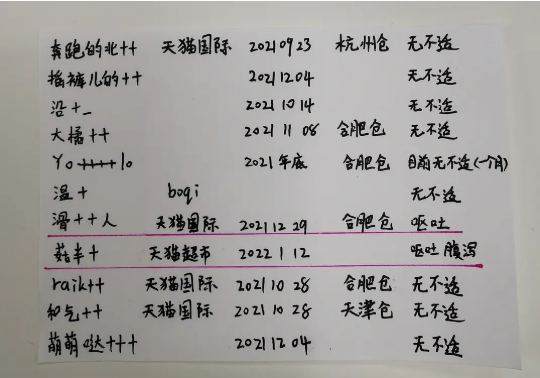 奔跑的北++ 天猫国际 20210923 杭州仓 无不适
捂裤儿的++ 20211204 无不适
沿+_ 20211014 无不适
大橘++ 20211108 合肥仓 无不适
Yo+++++lo 2021年底 合肥仓 目前无不适(一个月)
温+ boqi 无不适
滑++人 天猫国际 20211229 合肥仓 呕吐
菇半+ 天猫超市 2022 1 12 呕吐腹泻
raik++ 天猫国际 20211028 合肥仓 无不适
和气++ 天猫国际 20211028 天津仓 无不适
萌萌哒+++ 20211204 无不适